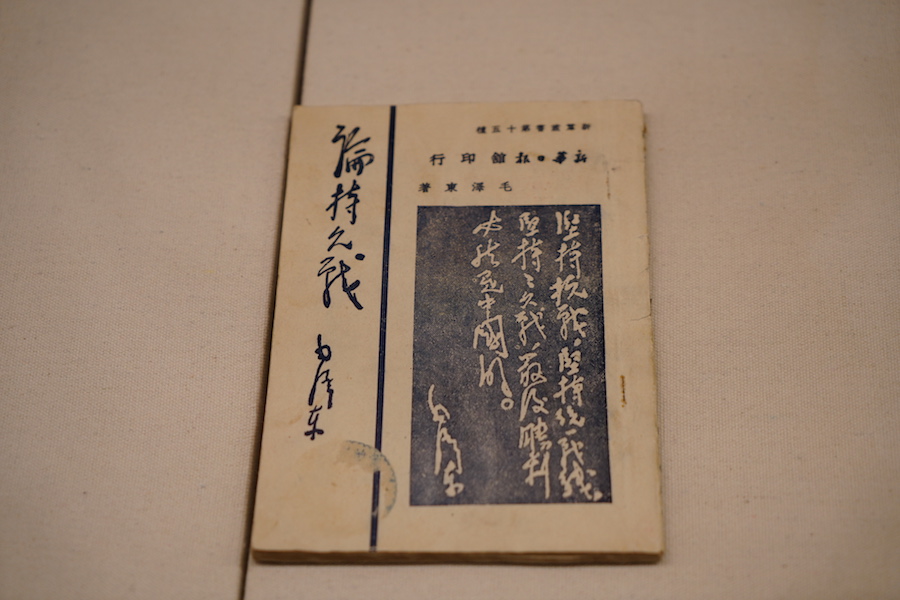 新羣叢書第十五種
新華日報館印行
毛澤東著
堅持抗戰、堅持統一戰線、
堅持々久戰、最後勝利
必然是中國的。
毛澤東
論持久戰
毛澤東